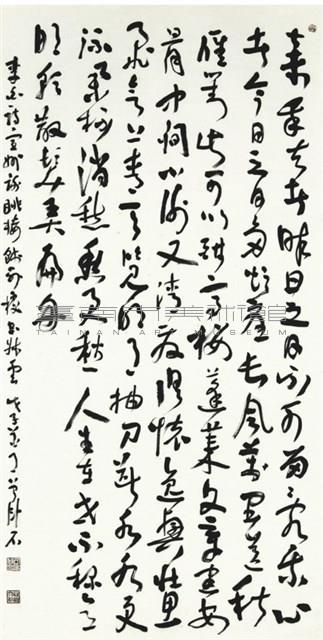 棄我去者昨日之日不可留亂我心
者今日之日多煩憂長風萬里送秋
雁對此可以酣高樓蓬萊文章建安
骨中間小謝又清發俱懷逸興壯思
飛欲上青天覽明月抽刀斷水水更
流舉杯消愁愁更愁人生在世不稱意
明朝散髮弄扁舟
李白詩宣州謝朓樓餞別校書叔雲 戊子
臺南市美術館
TAINAN ART MUSEUM